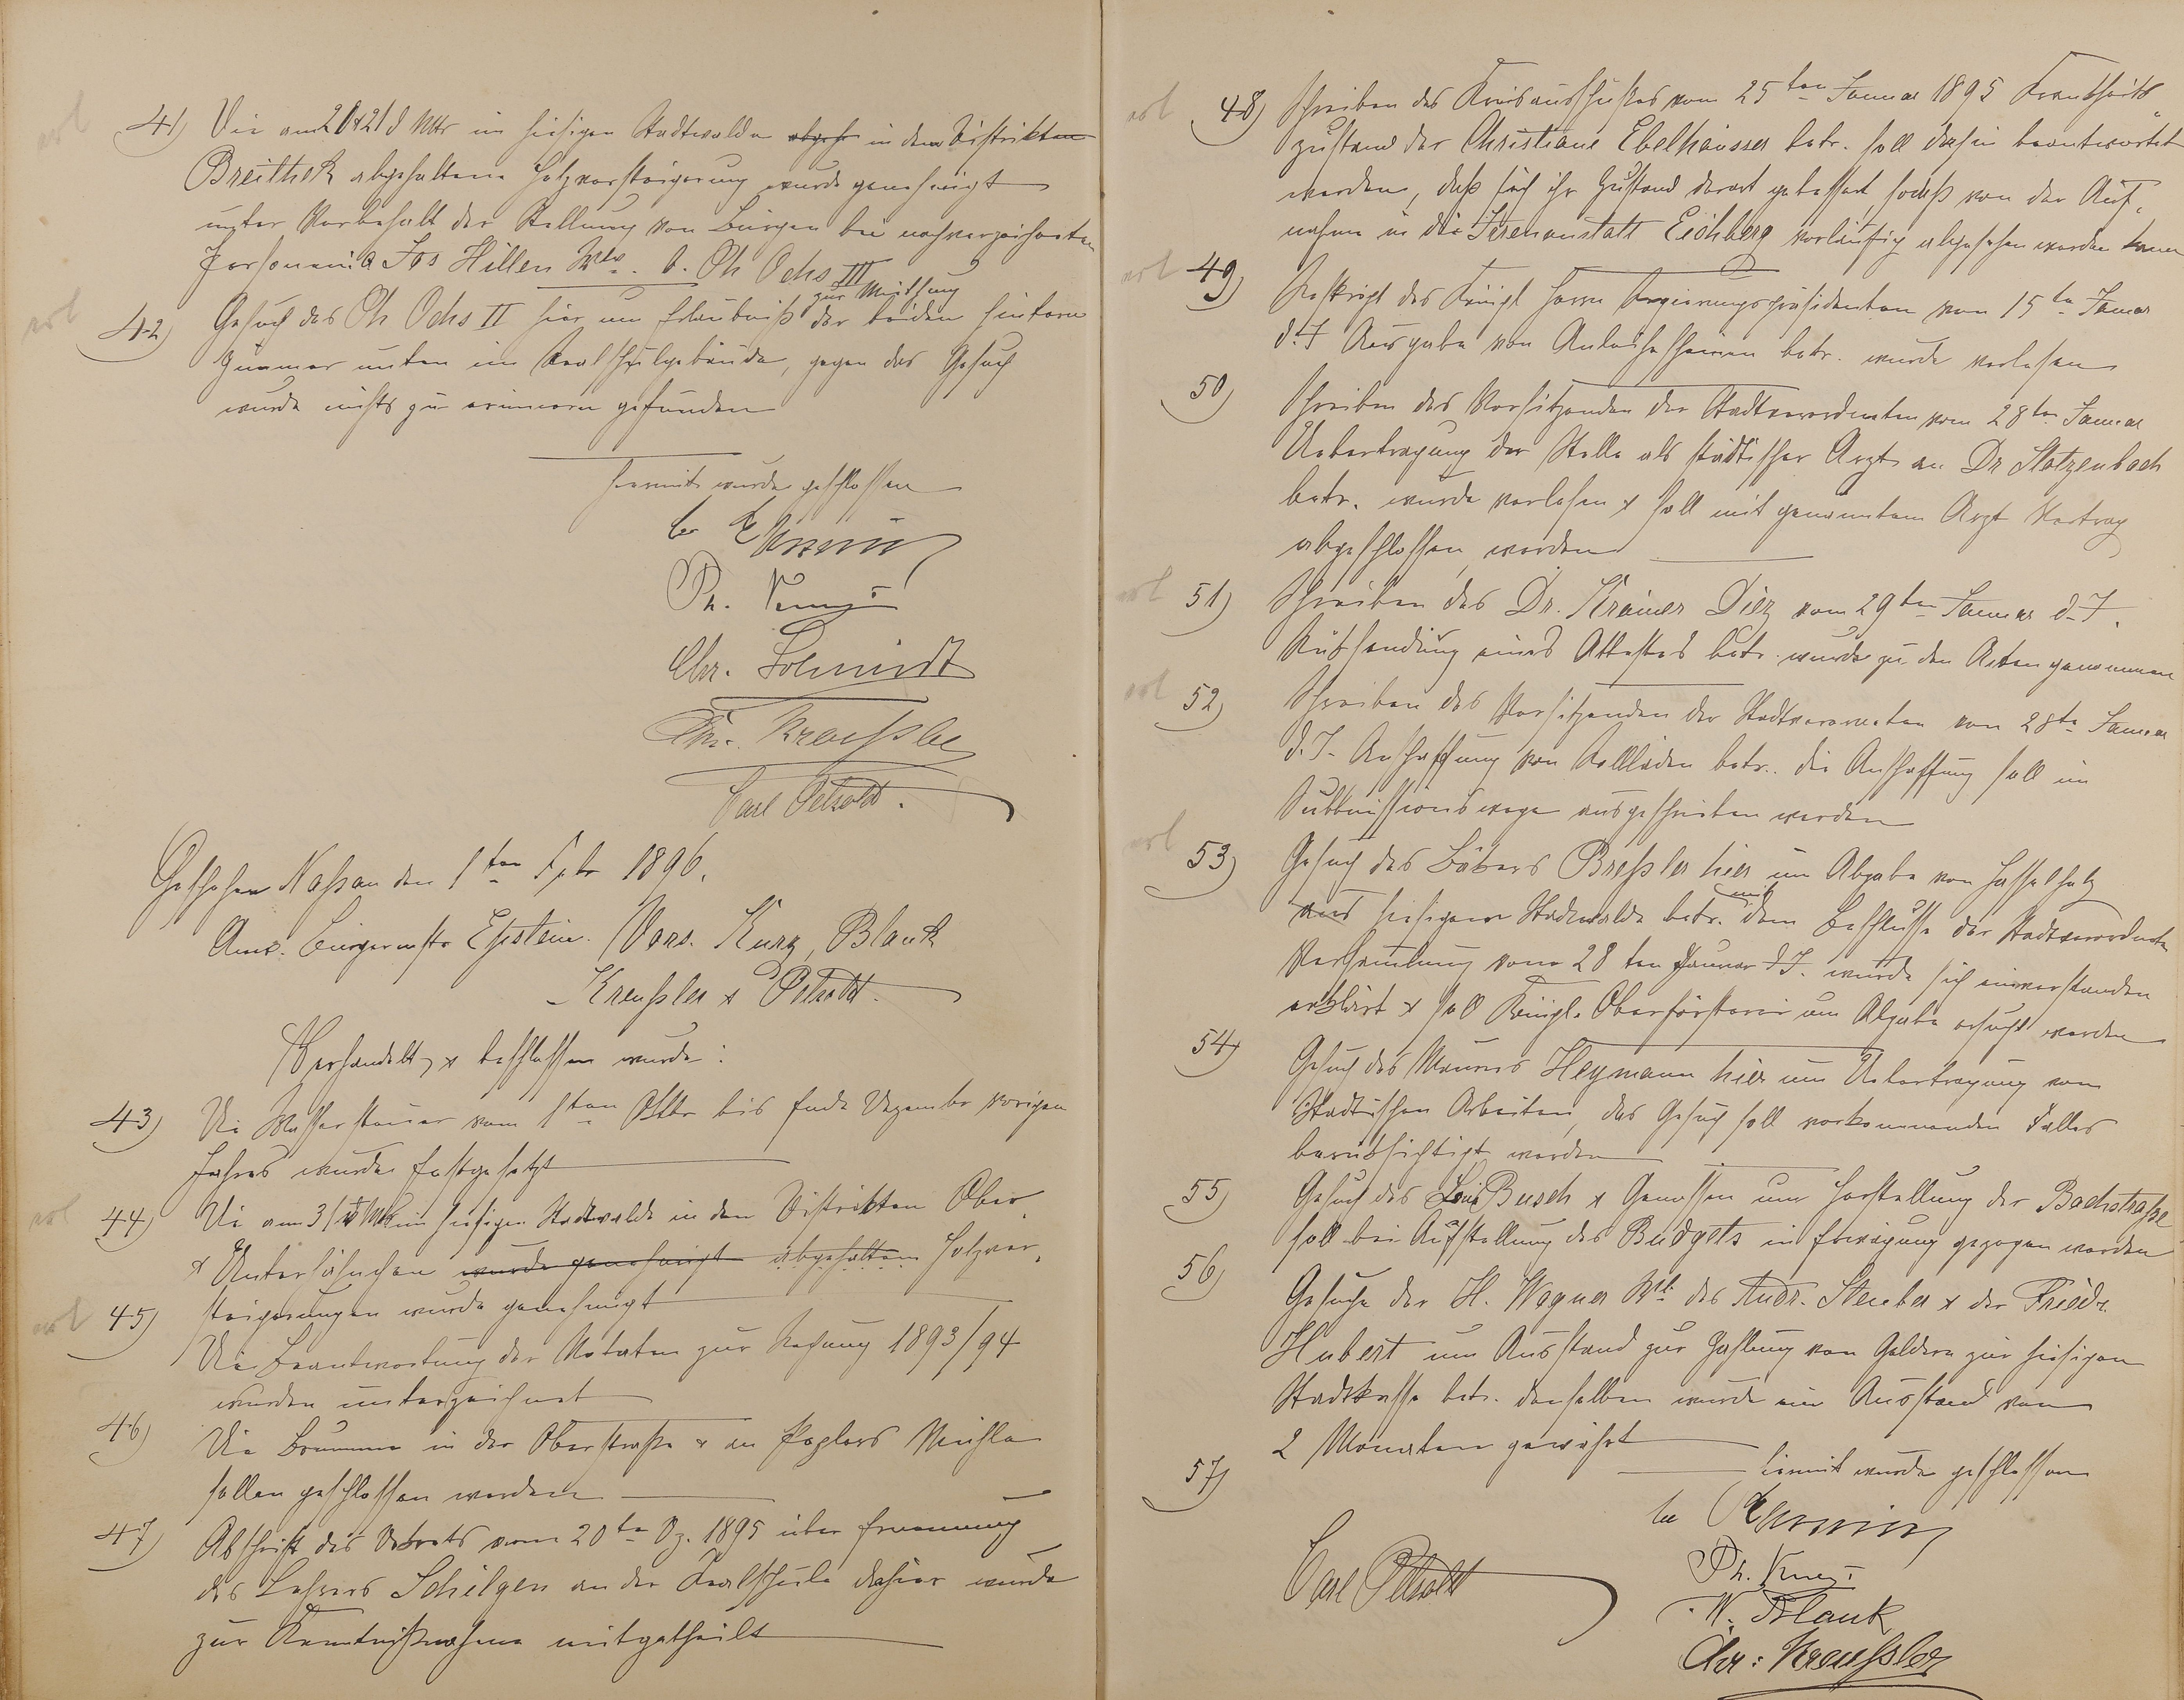 erl 41) Die am 20 & 21 d Mts im hiesigen Stadtwalde abgeh in dem Distrikten
Breitheck abgehaltene Holzversteigerung wurde genehmigt
unter Vorbehalt der Stellung von Bürgen bei nachverzeichneten
Personen: a Jos Hillen Wtw. b. Ph Ochs III
zur Miethung
erl 42) Gesuch des Ph Ochs II hier um Erlaubniß der beiden hintern
Zimmer unten im Realschulgebäude, gegen das Gesuch
wurde nichts zu erinnern gefunden
Hiermit wurde geschlossen
Ph.
Chr. Schmidt
Chr. Kreußler
Carl Petzoldt.
Geschehen Naßau den 1ten Febr 1896.
Anw. Bürgermstr Epstein. Vors. Kurz, Blank
Kreußler & Petzoldt.
Verhandelt & beschlossen wurde:
43) Die Wassersteuer vom 1ten Oktbr bis Ende Dezember vorigen
Jahres wurde festgesetzt
erl 44) Die am 31 v Mts im hiesigen Stadtwalde in den Distrikten Ober-
& Unterhähnchen wurde genehmigt abgehaltene Holzver-
steigerungen wurde genehmigt
erl 45) Die Beantwortung der Notaten zur Rechnung 1893/94
wurden unterzeichnet
46) Die Brunnen in der Oberstraße & an Mühle
sollen geschlossen werden
47) Abschrift des Dekrets vom 20ten Dz. 1895 über Ernennung
des Lehrers Schilgen an der Realschule dahier wurde
zur Kenntnißnahme mitgetheilt
erl 48) Schreiben des Kreisausschußes vom 25ten Januar 1895 Krankheits
zustand der Christiane Ebelhäusser betr. soll dahin beantwortet
werden, daß sich ihr Zustand derart gebessert, sodaß von der Auf-
nahme in die Irrenanstalt Eichberg vorläufig abgesehen werden kann
erl 49) Reskript des Königl Herrn Regierungspräsidenten vom 15ten Januar
d. J Ausgabe von Anleihescheinen betr. wurde verlesen
50) Schreiben des Vorsitzenden der Stadtverordneten vom 28ten Januar
Uebertragung der Stelle als städtischer Arzt an Dr Stotzenbach
betr. wurde verlesen & soll mit genanntem Arzt Vertrag
abgeschlossen werden
erl 51) Schreiben des Dr. Kramer Diez vom 29ten Januar d. J.
Rücksendung eines Attestes betr. wurde zu den Akten genommen
erl 52) Schreiben des Vorsitzenden der Stadtverordneten vom 28ten Januar
d. J. Anschaffung von Rollläden betr. die Anschaffung soll im
Submissionswege ausgeschrieben werden
erl 53) Gesuch des Bäckers Breßler hier um Abgabe von
aus hiesigem Stadtwalde betr. mit dem Beschlusse der Stadtverordneten
Versammlung vom 28ten Januar d J. wurde sich einverstanden
erklärt & soll Königl. Oberförsterei um Abgabe ersucht werden
54) Gesuch des Maurers Heymann hier um Uebertragung von
Städtischen Arbeiten, das Gesuch soll vorkommenden Falles
berücksichtigt werden
55) Gesuch des Louis Busch & Genossen um Herstellung der Bachstraße
soll bei Aufstellung des Budgets in Erwägung gezogen werden
56) Gesuche der H. Wagner Wtw. des Andr. Steuber & der Friedr.
Hubert um Ausstand zur Zahlung von Geldern zur hiesigen
Stadtkasse betr. denselben wurde ein Ausstand von
2 Monaten gewährt
57) Hiermit wurde geschlossen
Carl Petzoldt
Ph. Kurz
W. Blank
Chr: Kreußler